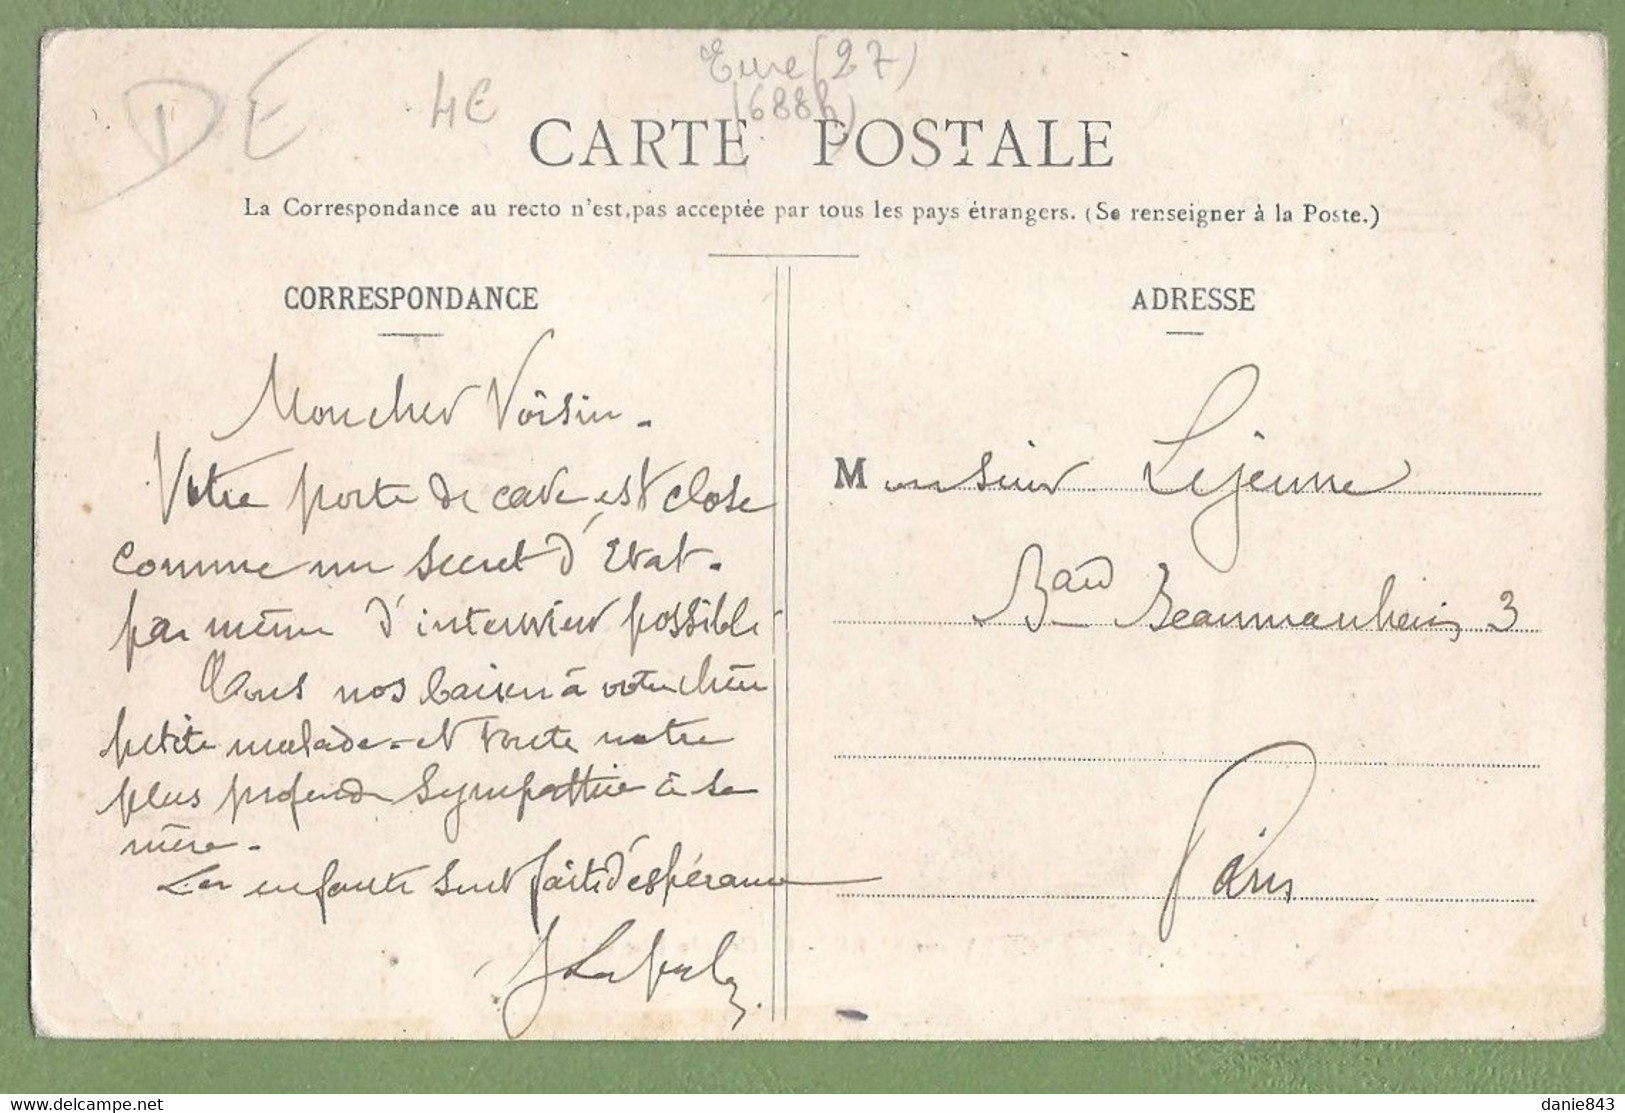 DE
4€
Eure (27)
(688h)
CARTE POSTALE
La Correspondance au recto n'est pas acceptée par tous les pays étrangers. (Se renseigner à la Poste.)
CORRESPONDANCE
ADRESSE
Mon cher Voisin.
Votre porte de cave est close
comme un secret d'Etat.
pas même d'interview possible
Tous nos baisers à votre chère
petite malade. et toute notre
plus profonde sympathie à sa
mère.
Les enfants sont faits d'espérance
Monsieur Lejeune
Bard Beaumarchais 3
Paris
danie843